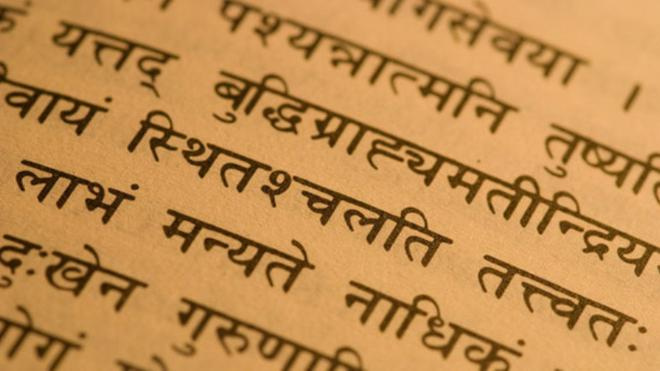 योगसेवया ।
पश्यन्नात्मनि तुष्यति
यत्तद् बुद्धिग्राह्यमतीन्द्रिय
वायं स्थितश्चलति तत्त्वतः
लाभं मन्यते नाधिकं
दुःखेन गुरुणापि
योगं